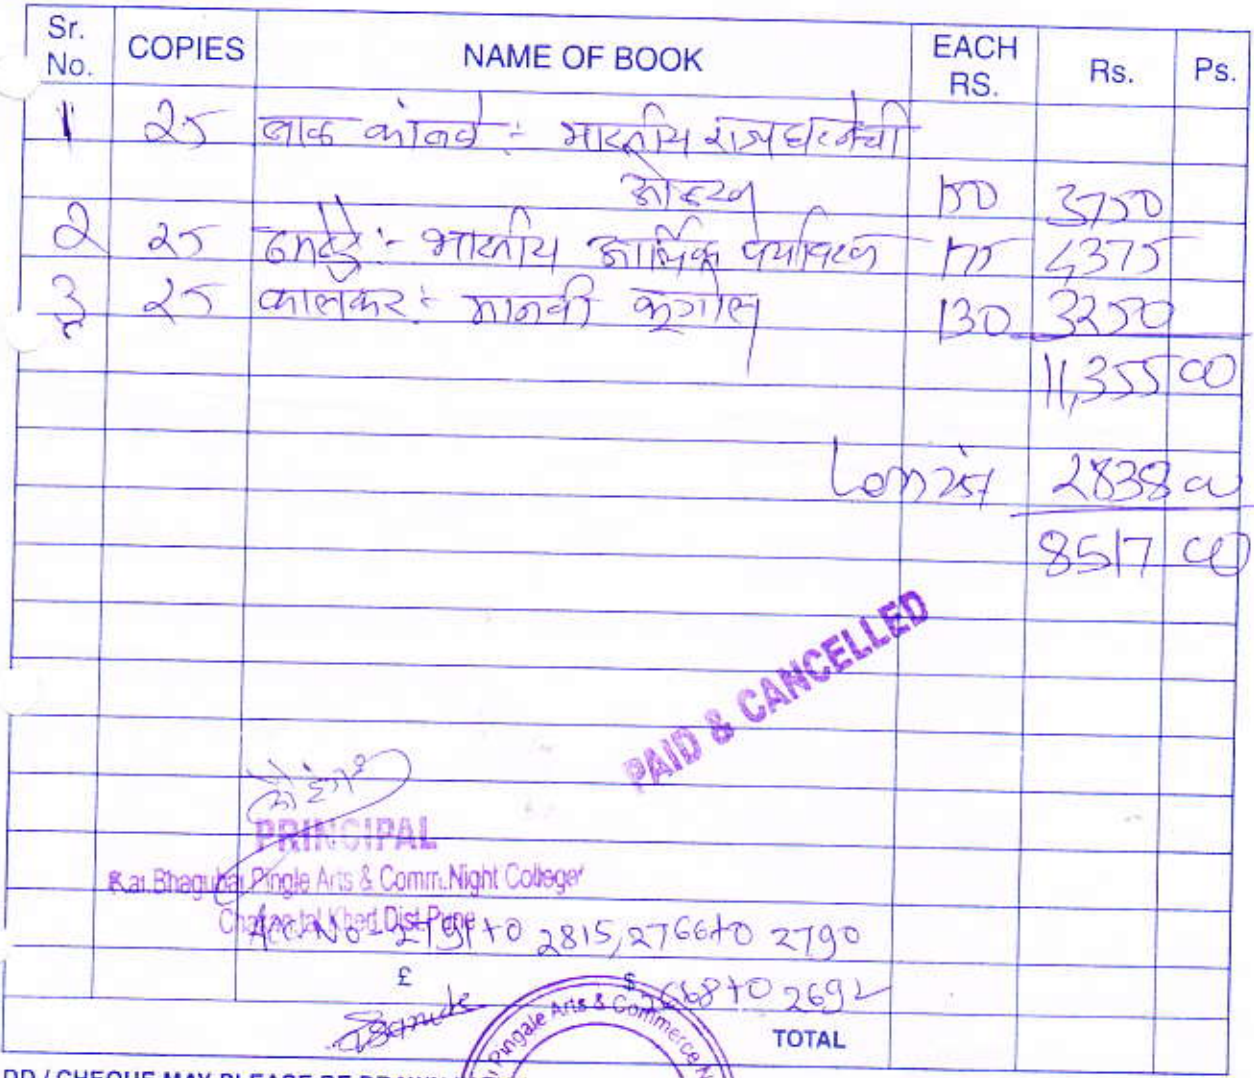 Sr. No. COPIES NAME OF BOOK EACH RS. Rs. Ps.
1 25 लाक कांबळे :- भारतीय राज्यघटनेची
ओळख 150 3750
2 25 :- भारतीय आर्थिक पर्यावरण 175 4375
3 25 कालकर :- मानवी भूगोल 130 3250
11,355 00
2838 00
8517 00
PAID & CANCELLED
PRINCIPAL
Kai. Bhagubai Pingle Arts & Comm. Night College
Chakan, tal. Khed, Dist. Pune
Acc. No - 2791 to 2815, 2766 to 2790
£ $ 2668 to 2692
Pingale Arts & Commerce N
TOTAL